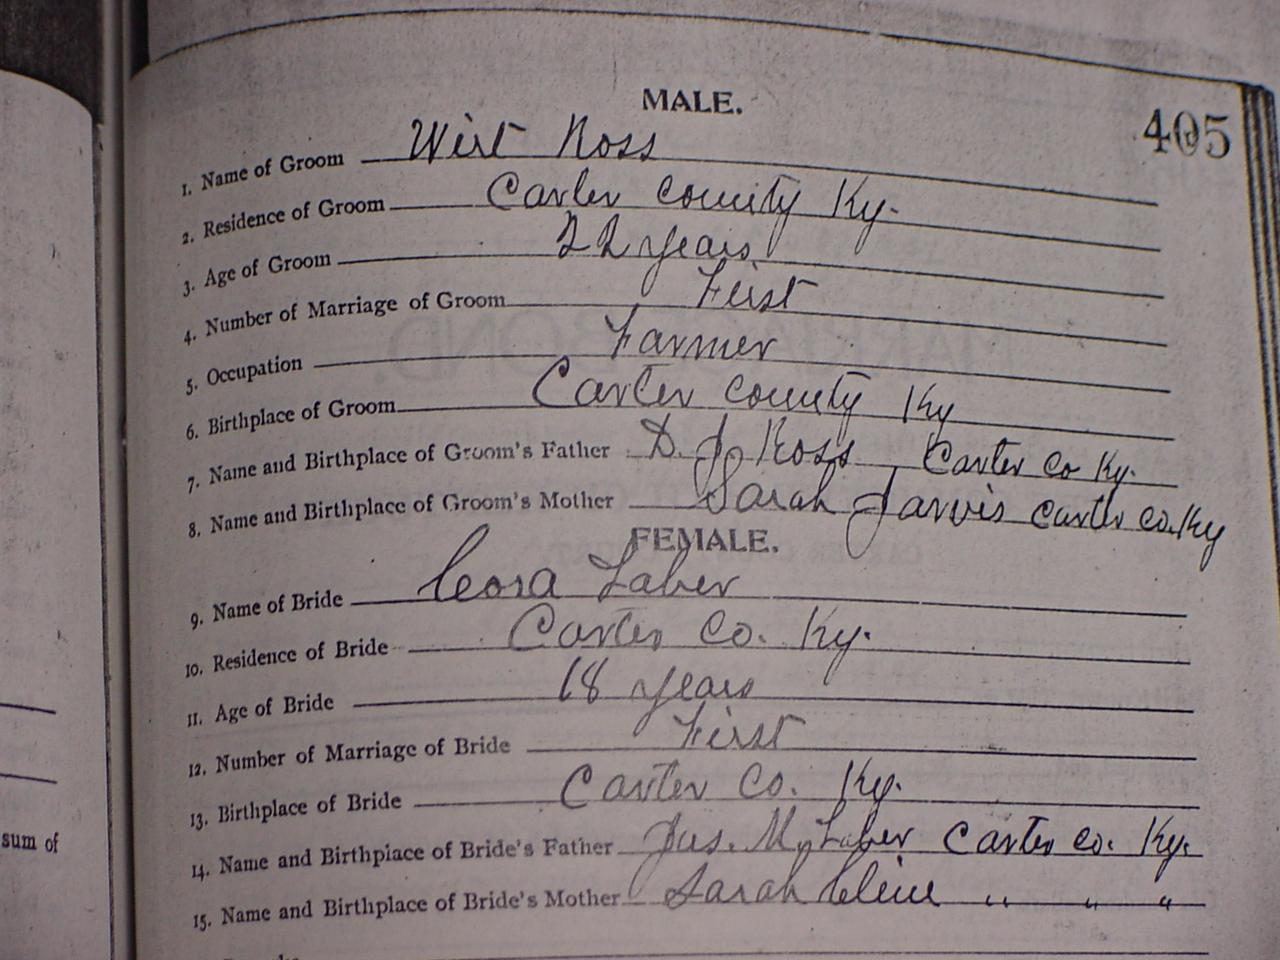 MALE.
405
1. Name of Groom Wirt Ross
2. Residence of Groom Carter county Ky.
3. Age of Groom 22 years
4. Number of Marriage of Groom First
5. Occupation Farmer
6. Birthplace of Groom Carter county Ky
7. Name and Birthplace of Groom's Father D. J. Ross Carter Co Ky.
8. Name and Birthplace of Groom's Mother Sarah Jarvis Carter co. Ky
FEMALE.
9. Name of Bride Cora Laber
10. Residence of Bride Carter Co. Ky.
11. Age of Bride 18 years
12. Number of Marriage of Bride First
13. Birthplace of Bride Carter Co. Ky.
14. Name and Birthplace of Bride's Father Jas. M. Laber Carter co. Ky.
15. Name and Birthplace of Bride's Mother Sarah Cline " " "
sum of